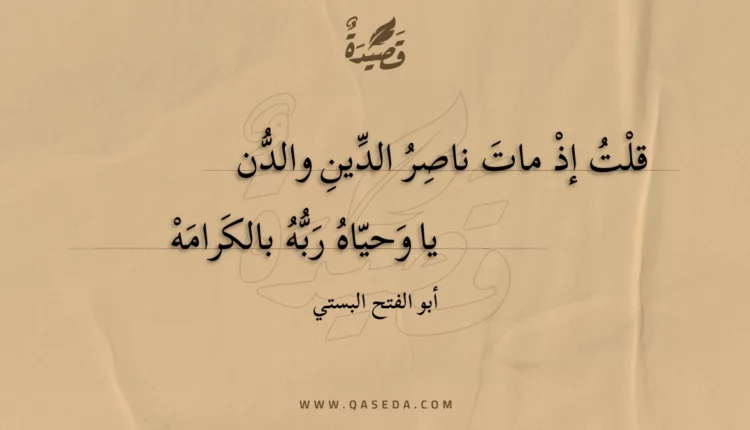 قَصِيدَةٌ
قلْتُ إذْ ماتَ ناصِرُ الدِّينِ والدُّن
يا وَحيّاهُ رَبُّهُ بالكَرامَهْ
أبو الفتح البستي
WWW.QASEDA.COM